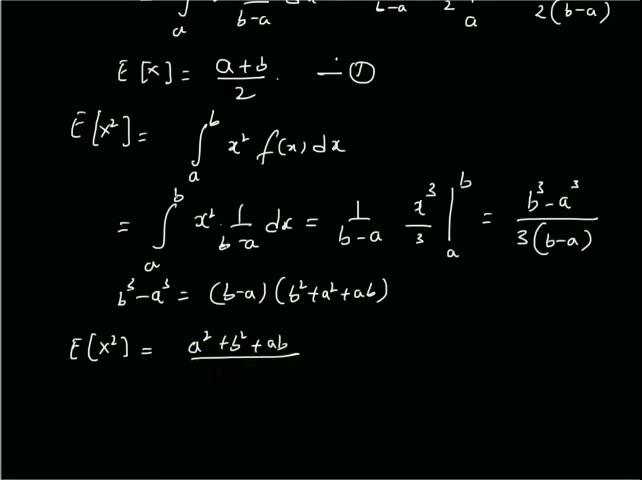 ∫ a b-a b-a 2 a 2(b-a)
E[x] = a+b/2 . — ①
E[x²] = ∫_a^b x² f(x) dx
= ∫_a^b x² · 1/b-a dx = 1/b-a x³/3 |_a^b = b³-a³/3(b-a)
b³-a³ = (b-a)(b²+a²+ab)
E[x²] = a²+b²+ab